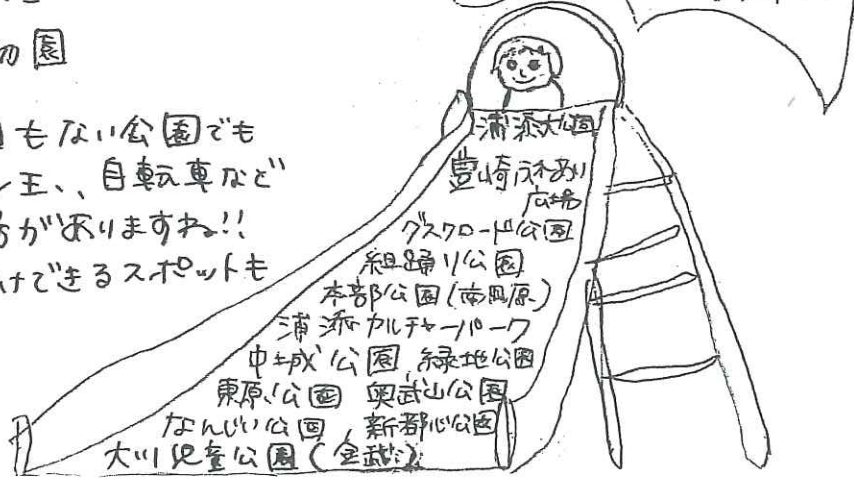 の園
もない公園でも
自転車など
がありますね!!
できるスポットも
浦添大公園
豊崎ふれあい
広場
グスクロード公園
組踊り公園
本部公園(南風原)
浦添カルチャーパーク
中城公園 緑地公園
東原公園 奥武山公園
なんじい公園、新都心公園
大川児童公園(金武)